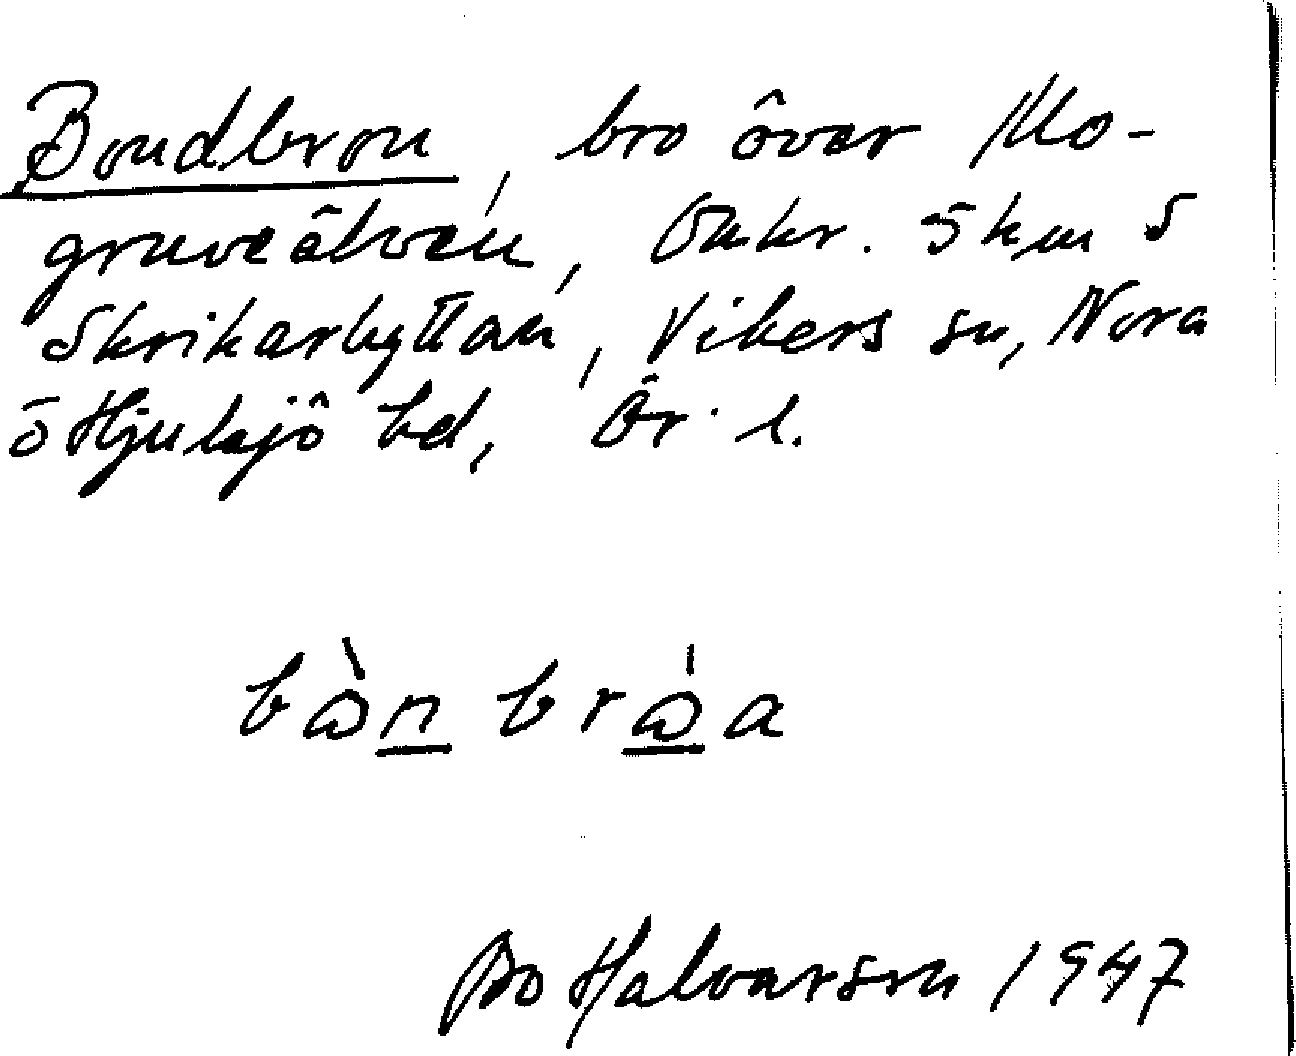 Bondbron, bro över Mo-
gruveälven, Omkr. 5 km S
Skrikarhyttan, Vikers sn, Nora
o Hjulsjö bd, Ör. l.
bὼn brὼa
Bo Halvarson 1947